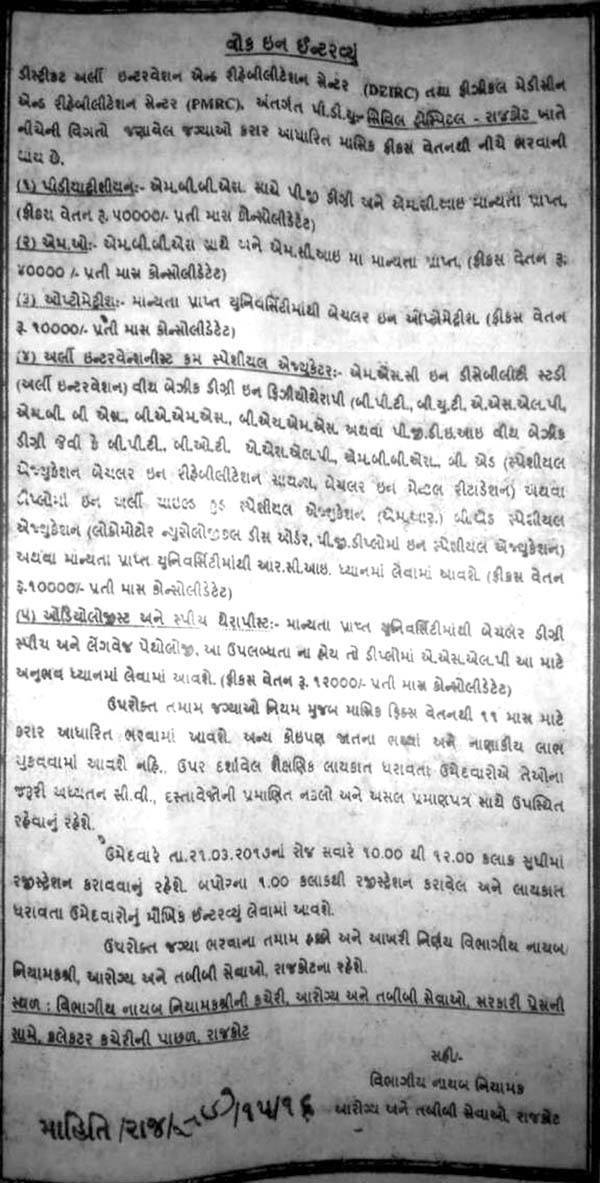 વોક ઇન ઈન્ટરવ્યું
ડીસ્ટ્રીકટ અર્લી ઇન્ટરવેશન એન્ડ રીહેબીલીટેશન સેન્ટર (DEIRC) તથા ફીઝીકલ મેડીસીન
એન્ડ રીહેબીલીટેશન સેન્ટર (PMRC), અંતર્ગત પી.ડી.યુ. સિવિલ હોસ્પિટલ - રાજકોટ ખાતે
નીચેની વિગતો જણાવેલ જગ્યાઓ કરાર આધારિત માસિક ફીકસ વેતનથી નીચે ભરવાની
થાય છે.
(૧) પીડીયાટ્રીશીયન:- એમ.બી.બી.એસ. સાથે પી.જી ડીગ્રી અને એમ.સી.આઇ માન્યતા પ્રાપ્ત,
(ફીકસ વેતન રૂ. ૫૦૦૦૦/- પ્રતી માસ કોન્સોલીડેટેટ)
(૨) એમ.ઓ:- એમ.બી.બી.એસ સાથે અને એમ.સી.આઇ મા માન્યતા પ્રાપ્ત, (ફીકસ વેતન રૂ.
૪૦૦૦૦ /- પ્રતી માસ કોન્સોલીડેટેટ)
(૩) ઓપ્ટોમેટ્રીશ:- માન્યતા પ્રાપ્ત યુનિવર્સિટીમાંથી બેચલર ઇન ઓપ્ટોમેટ્રીશ. (ફીકસ વેતન
રૂ.૧૦૦૦૦/- પ્રતી માસ કોન્સોલીડેટેટ)
(૪) અર્લી ઇન્ટરવેન્શનીસ્ટ કમ સ્પેશીયલ એજ્યુકેટર:- એમ.એસ.સી ઇન ડીસેબીલીટી સ્ટડી
(અર્લી ઇન્ટરવેશન) વીથ બેઝીક ડીગ્રી ઇન ફિઝીયોથેરાપી (બી.પી.ટી., બી.યુ.ટી, એ.એસ.એલ.પી,
એમ.બી. બી એસ., બી.એ.એમ.એસ., બી.એચ.એમ.એસ. અથવા પી.જી.ડી.ઇ.આઇ વીથ બેઝીક
ડીગ્રી જેવી કે બી.પી.ટી., બી.ઓ.ટી. એ.એસ.એલ.પી., એમ.બી.બી.એસ., બી. એડ (સ્પેશીયલ
એજ્યુકેશન બેચલર ઇન રીહેબીલીટેશન સાયન્સ, બેચલર ઇન મેન્ટલ રીટાડેશન) અથવા
ડીપ્લોમાં ઇન અર્લી ચાઇલ્ડ હુડ સ્પેશીયલ એજ્યુકેશન (એમ.આર.) બી.એડ સ્પેશીયલ
એજ્યુકેશન (લોકોમોટર ન્યુરોલોજીકલ ડીસ ઓર્ડર, પી.જી.ડીપ્લોમાં ઇન સ્પેશીયલ એજ્યુકેશન)
અથવા માન્યતા પ્રાપ્ત યુનિવર્સિટીમાંથી આર.સી.આઇ. ધ્યાનમાં લેવામાં આવશે. (ફીકસ વેતન
રૂ.૧૦૦૦૦/- પ્રતી માસ કોન્સોલીડેટેટ)
(૫) ઓડિયોલોજીસ્ટ અને સ્પીચ થેરાપીસ્ટ:- માન્યતા પ્રાપ્ત યુનિવર્સિટીમાંથી બેચલર ડીગ્રી
સ્પીચ અને લેંગવેજ પેથોલોજી. આ ઉપલબ્ધતા ના હોય તો ડીપ્લોમાં એ.એસ.એલ.પી આ માટે
અનુભવ ધ્યાનમાં લેવામાં આવશે. (ફીકસ વેતન રૂ. ૧૨૦૦૦/- પ્રતી માસ કોન્સોલીડેટેટ)
ઉપરોક્ત તમામ જગ્યાઓ નિયમ મુજબ માસિક ફિક્સ વેતનથી ૧૧ માસ માટે
કરાર આધારિત ભરવામાં આવશે. અન્ય કોઇપણ જાતના ભથ્થાં અને નાણાકીય લાભ
ચુકવવામાં આવશે નહિ., ઉપર દર્શાવેલ શૈક્ષણિક લાયકાત ધરાવતા ઉમેદવારોએ તેઓના
જરૂરી અધ્યતન સી.વી., દસ્તાવેજોની પ્રમાણિત નકલો અને અસલ પ્રમાણપત્ર સાથે ઉપસ્થિત
રહેવાનું રહેશે.
ઉમેદવારે તા.૨૧.૦૩.૨૦૧૭નાં રોજ સવારે ૧૦.૦૦ થી ૧૨.૦૦ કલાક સુધીમાં
રજીસ્ટ્રેશન કરાવવાનું રહેશે. બપોરના ૧.૦૦ કલાકથી રજીસ્ટ્રેશન કરાવેલ અને લાયકાત
ધરાવતા ઉમેદવારોનું મૌખિક ઈન્ટરવ્યું લેવામાં આવશે.
ઉપરોક્ત જગ્યા ભરવાના તમામ હક્કો અને આખરી નિર્ણય વિભાગીય નાયબ
નિયામકશ્રી, આરોગ્ય અને તબીબી સેવાઓ, રાજકોટના રહેશે.
સ્થળ : વિભાગીય નાયબ નિયામકશ્રીની કચેરી, આરોગ્ય અને તબીબી સેવાઓ, સરકારી પ્રેસની
સામે, કલેકટર કચેરીની પાછળ, રાજકોટ
સહી/-
વિભાગીય નાયબ નિયામક
આરોગ્ય અને તબીબી સેવાઓ, રાજકોટ
માહિતિ/રાજ/ /૧૫/૧૬